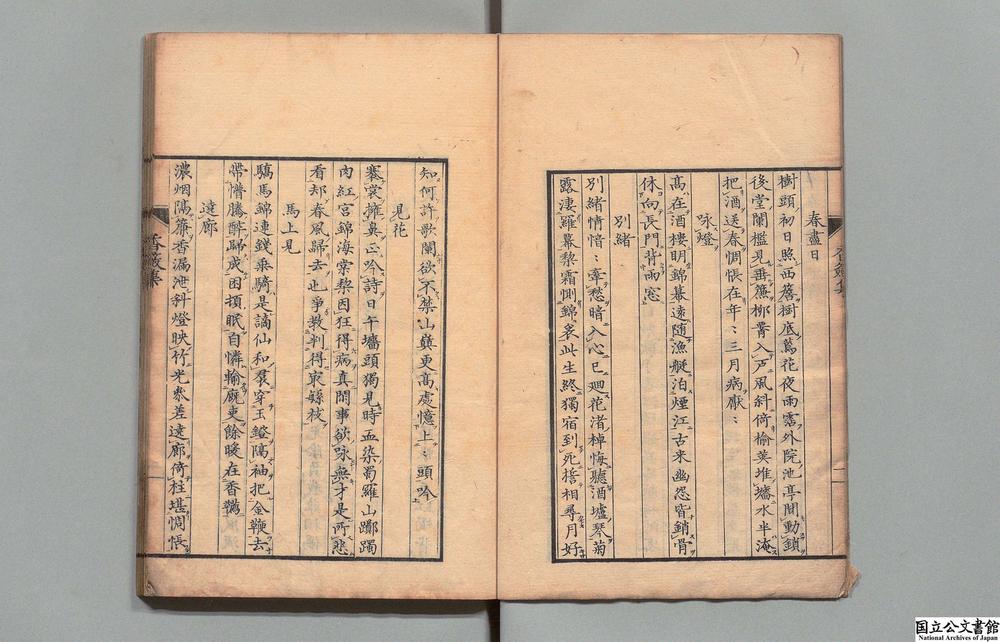 春盡日
樹頭初日照西簷樹底蔫花夜雨霑外院池亭聞動鎖
後堂闌檻見垂簾柳腰入戸風斜倚榆莢堆墻水半淹
把酒送春惆悵在年〻三月病厭〻
咏燈
高在酒樓明錦幕遠随漁艇泊煙江古来幽怨皆銷骨
休向長門背雨窓
別緒
別緒情愔〻牽愁暗入心已廻花渚棹悔聽酒壚琴菊
露凄羅幕梨霜惻錦衾此生終獨宿到死誓相尋月好
知何許歌闌欲不禁山巔更高處憶上〻頭吟
見花
褰裳擁鼻正吟詩日午墻頭獨見時血染蜀羅山躑躅
肉紅宮錦海棠梨因狂得病真閒事欲咏無才是所悲
看却春風歸去也爭教判得最繁枝
馬上見
驕馬錦連錢乗騎是謫仙和裙穿玉鐙隔袖把金鞭去
帶懵騰醉歸成困頓眠自憐輸廐吏餘暖在香韉
遶廊
濃烟隔簾香漏泄斜燈映竹光參差遶廊倚柱堪惆悵
香奩集
国立公文書館
National Archives of Japan